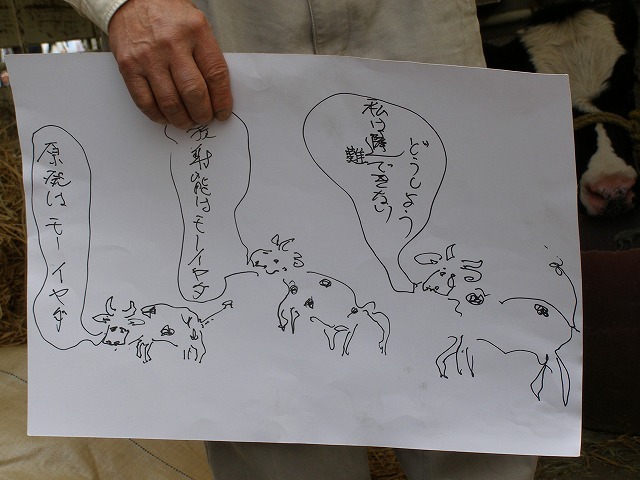 どうしよう
私は避難できない
放射能はモーイヤダ
原発はモーイヤダ